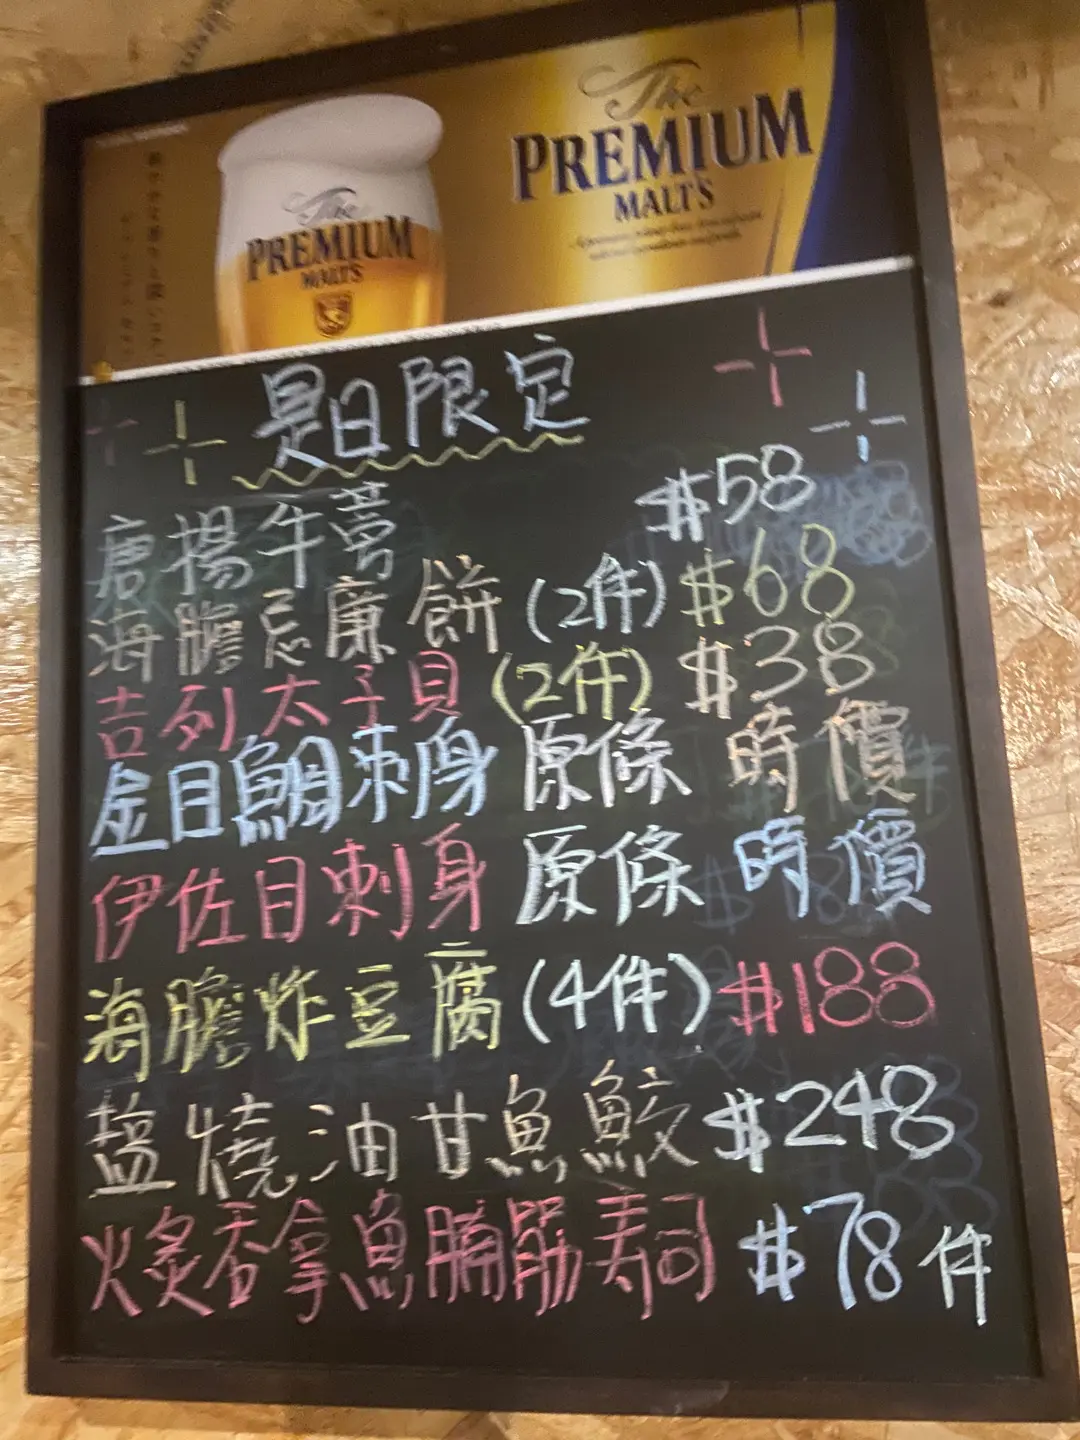 The
PREMIUM
MALT'S
The
PREMIUM
MALT'S
是日限定
唐揚牛蒡 $58
海膽忌廉餅 (2件) $68
吉列太子貝 (2件) $38
金目鯛刺身 原條 時價
伊佐目刺身 原條 時價
海膽炸豆腐 (4件) $188
盐燒油甘魚鮫 $248
火炙吞拿魚腩筋寿司 $78件